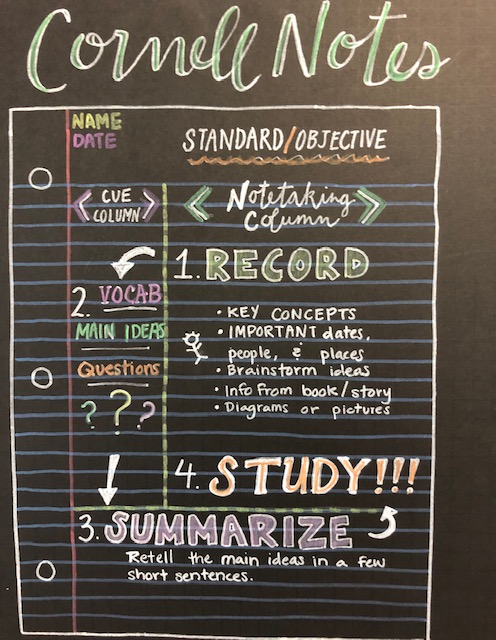 Cornell Notes
NAME
DATE
STANDARD/OBJECTIVE
CUE
COLUMN
Notetaking
Column
1. RECORD
2. VOCAB
MAIN IDEAS
Questions
? ? ?
• KEY CONCEPTS
• IMPORTANT dates,
people, & places
• Brainstorm ideas
• Info from book/story
• Diagrams or pictures
4. STUDY!!!
3. SUMMARIZE
Retell the main ideas in a few
short sentences.